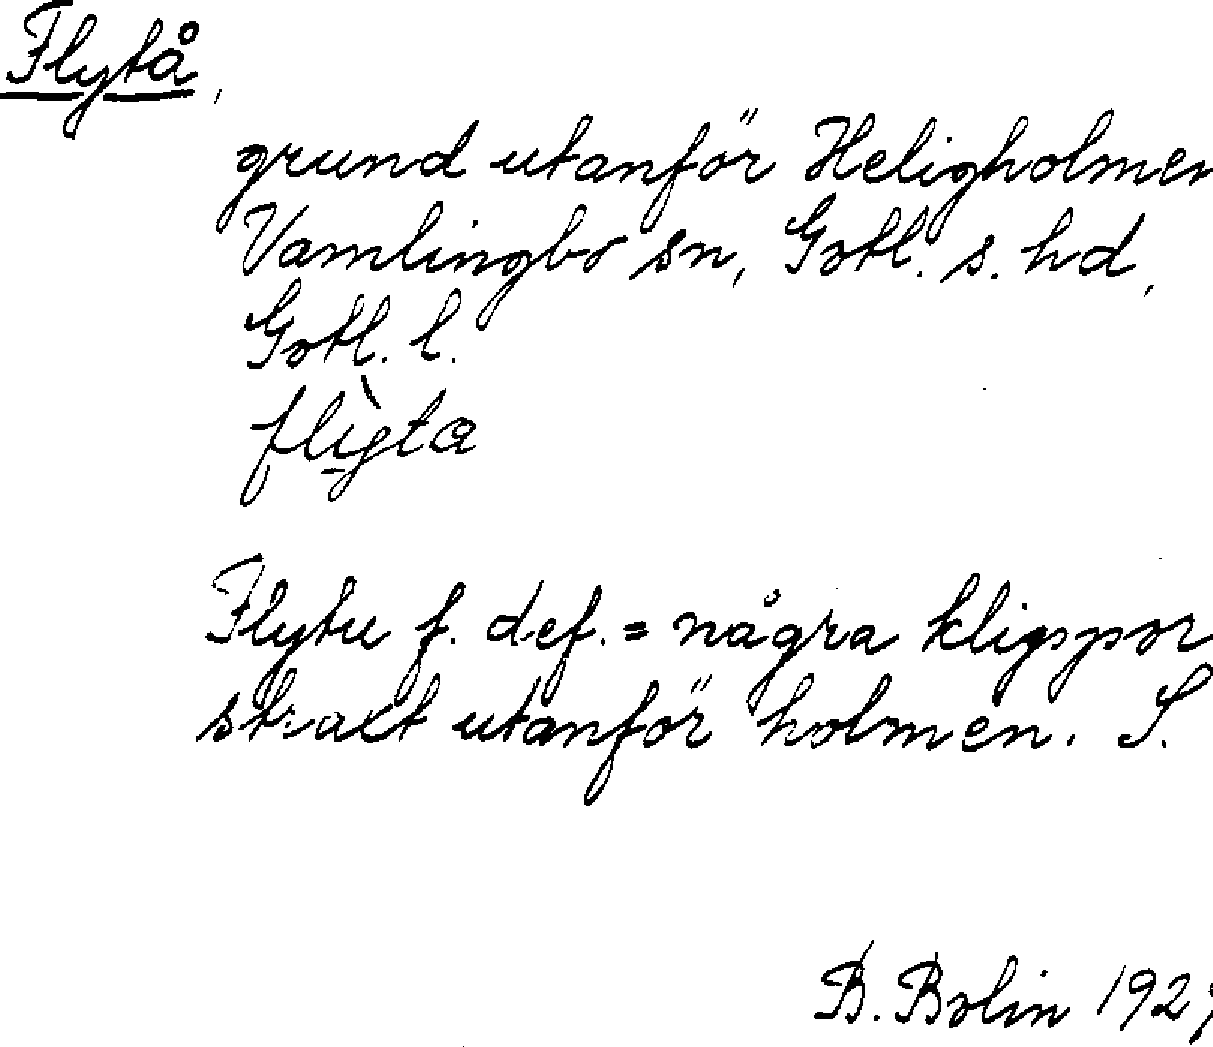 Flytå,
grund utanför Heligholmen
Vamlingbo sn, Gotl. s. hd,
Gotl. l.
Flytu f. def. = några klippor
straxt utanför holmen. S.
B. Bolin 192